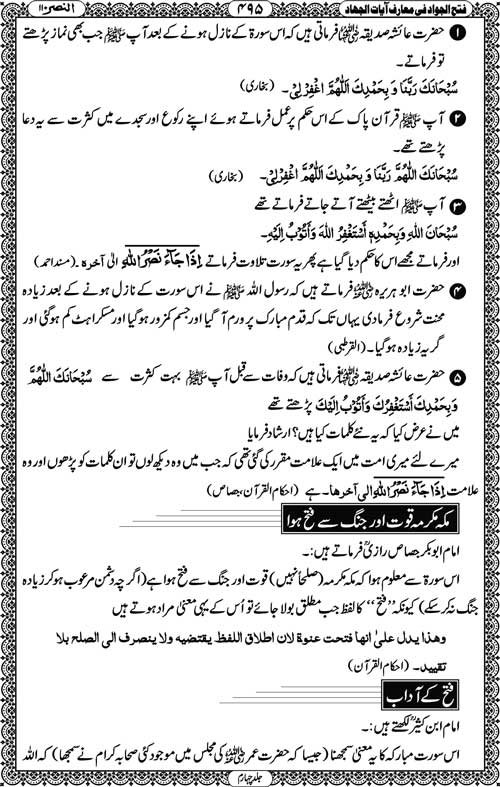 فتح الجواد فی معارف آیات الجهاد
۴۹۵
النصر ۱۱۰
۱ حضرت عائشہ صدیقہؓ فرماتی ہیں کہ اس سورۃ کے نازل ہونے کے بعد آپ ﷺ جب بھی نماز پڑھتے
تو فرماتے۔
سُبْحَانَكَ رَبَّنَا وَ بِحَمْدِكَ اَللّٰهُمَّ اغْفِرْلِیْ۔ (بخاری)
۲ آپ ﷺ قرآن پاک کے اس حکم پر عمل فرماتے ہوئے اپنے رکوع اور سجدے میں کثرت سے یہ دعا
پڑھتے تھے۔
سُبْحَانَكَ اَللّٰهُمَّ رَبَّنَا وَ بِحَمْدِكَ اَللّٰهُمَّ اغْفِرْلِیْ۔ (بخاری)
۳ آپ ﷺ اٹھتے بیٹھتے آتے جاتے فرماتے تھے
سُبْحَانَ اللّٰهِ وَبِحَمْدِهٖ اَسْتَغْفِرُ اللّٰهَ وَاَتُوْبُ اِلَيْهِ۔
اور فرماتے مجھے اس کا حکم دیا گیا ہے پھر یہ سورت تلاوت فرماتے اِذَا جَآءَ نَصْرُ اللّٰهِ الی آخرہ۔ (مسند احمد)
۴ حضرت ابو ہریرہؓ فرماتے ہیں کہ رسول اللہ ﷺ نے اس سورت کے نازل ہونے کے بعد زیادہ
محنت شروع فرمادی یہاں تک کہ قدم مبارک پر ورم آ گیا اور جسم کمزور ہو گیا اور مسکراہٹ کم ہوگئی اور
گریہ زیادہ ہو گیا۔ (القرطبی)
۵ حضرت عائشہ صدیقہؓ فرماتی ہیں کہ وفات سے قبل آپ ﷺ بہت کثرت سے سُبْحَانَكَ اَللّٰهُمَّ
وَبِحَمْدِكَ اَسْتَغْفِرُكَ وَاَتُوْبُ اِلَيْكَ پڑھتے تھے
میں نے عرض کیا کہ یہ نئے کلمات کیا ہیں؟ ارشاد فرمایا
میرے لئے میری امت میں ایک علامت مقرر کی گئی تھی کہ جب میں وہ دیکھ لوں تو ان کلمات کو پڑھوں اور وہ
علامت اِذَا جَآءَ نَصْرُ اللّٰهِ الی آخرها۔ ہے (احکام القرآن، جصاص)
مکہ مکرمہ قوت اور جنگ سے فتح ہوا
امام ابوبکر جصاص رازیؒ فرماتے ہیں:۔
اس سورۃ سے معلوم ہوا کہ مکہ مکرمہ (صلحاً نہیں) قوت اور جنگ سے فتح ہوا ہے (اگرچہ دشمن مرعوب ہو کر زیادہ
جنگ نہ کر سکے) کیونکہ "فتح" کا لفظ جب مطلق بولا جائے تو اُس کے یہی معنیٰ مراد ہوتے ہیں
وهذا يدل علىٰ انها فتحت عنوة لان اطلاق اللفظ يقتضيه ولا ينصرف الى الصلح بلا
تقييد۔ (احکام القرآن)
فتح کے آداب
امام ابن کثیرؒ لکھتے ہیں:۔
اس سورت مبارکہ کا یہ معنیٰ سمجھنا (جیسا کہ حضرت عمرؓ کی مجلس میں موجود کئی صحابہ کرام نے سمجھا) کہ اللہ
جلد چہارم